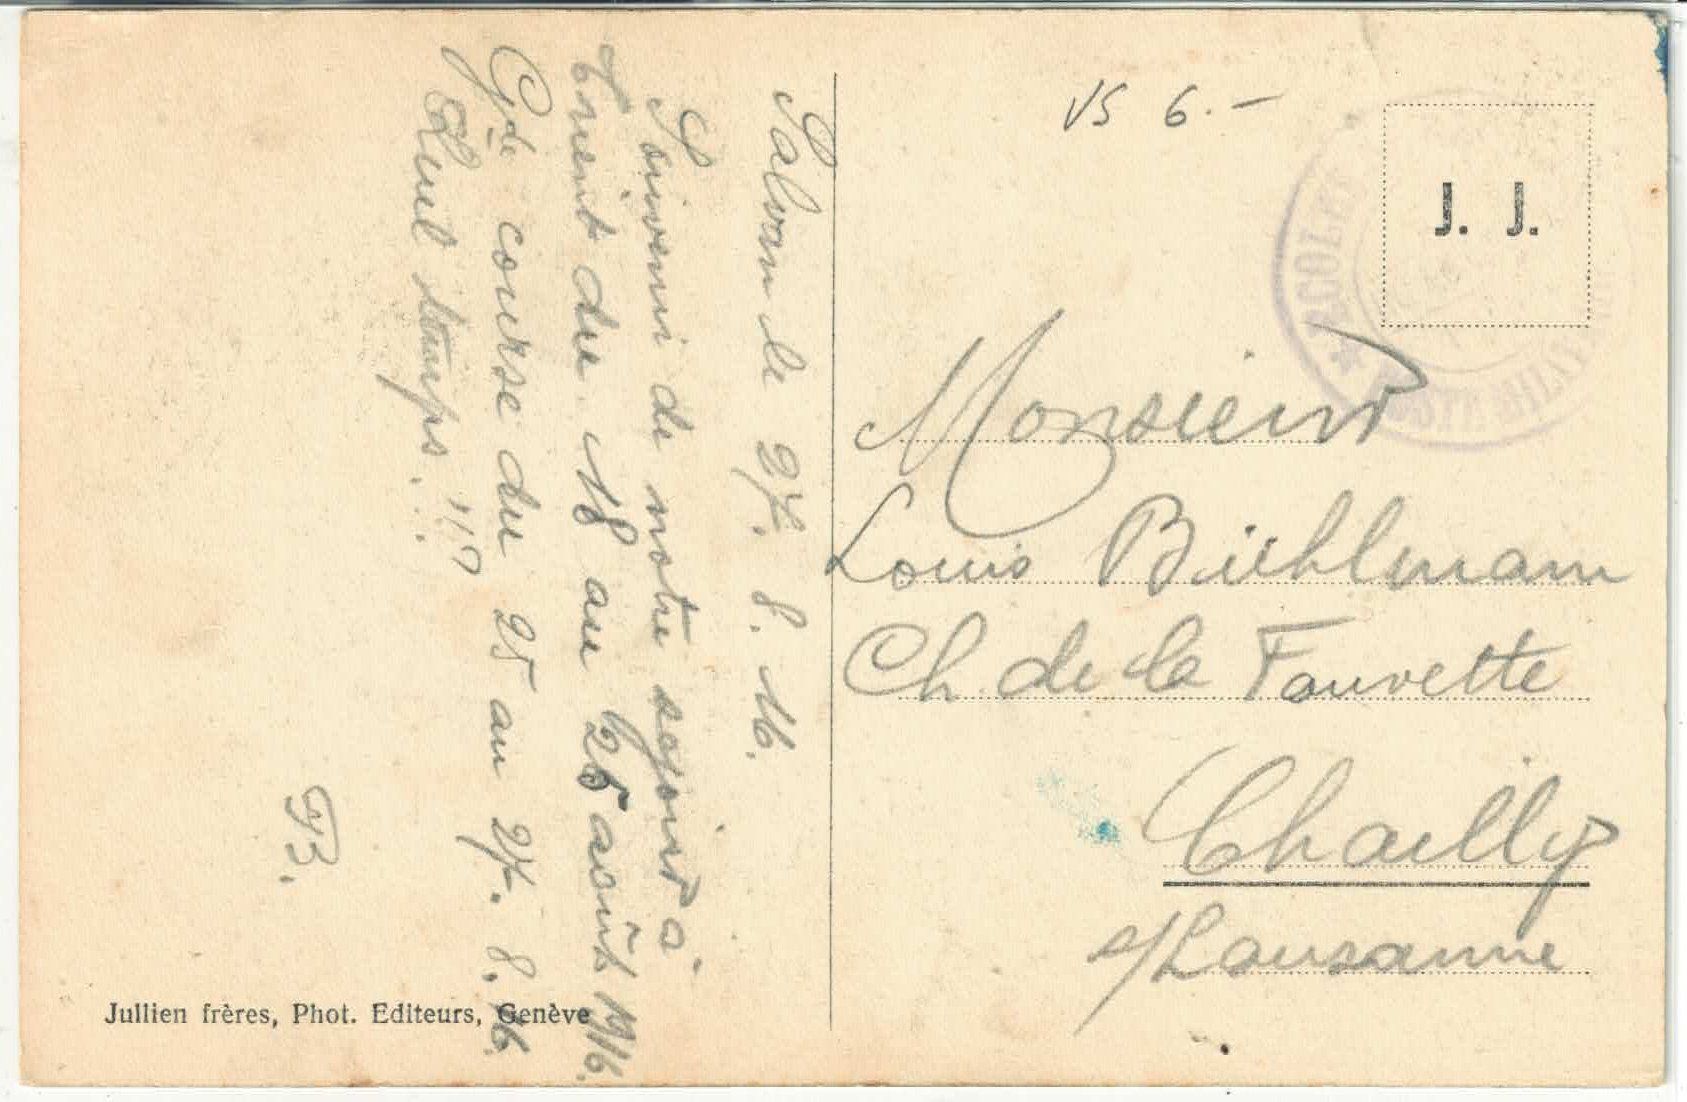 Salvan le 27. 8. 16.
Souvenir de notre séjour à
Trient du 18 au 25 août 1916.
Gde course du 25 au 27. 8. 16.
Quel temps..!!?
FB.
Jullien frères, Phot. Editeurs, Genève
VS 6.-
J. J.
Monsieur
Louis Biehlmann
Ch. de la Fauvette
Chailly
s/Lausanne